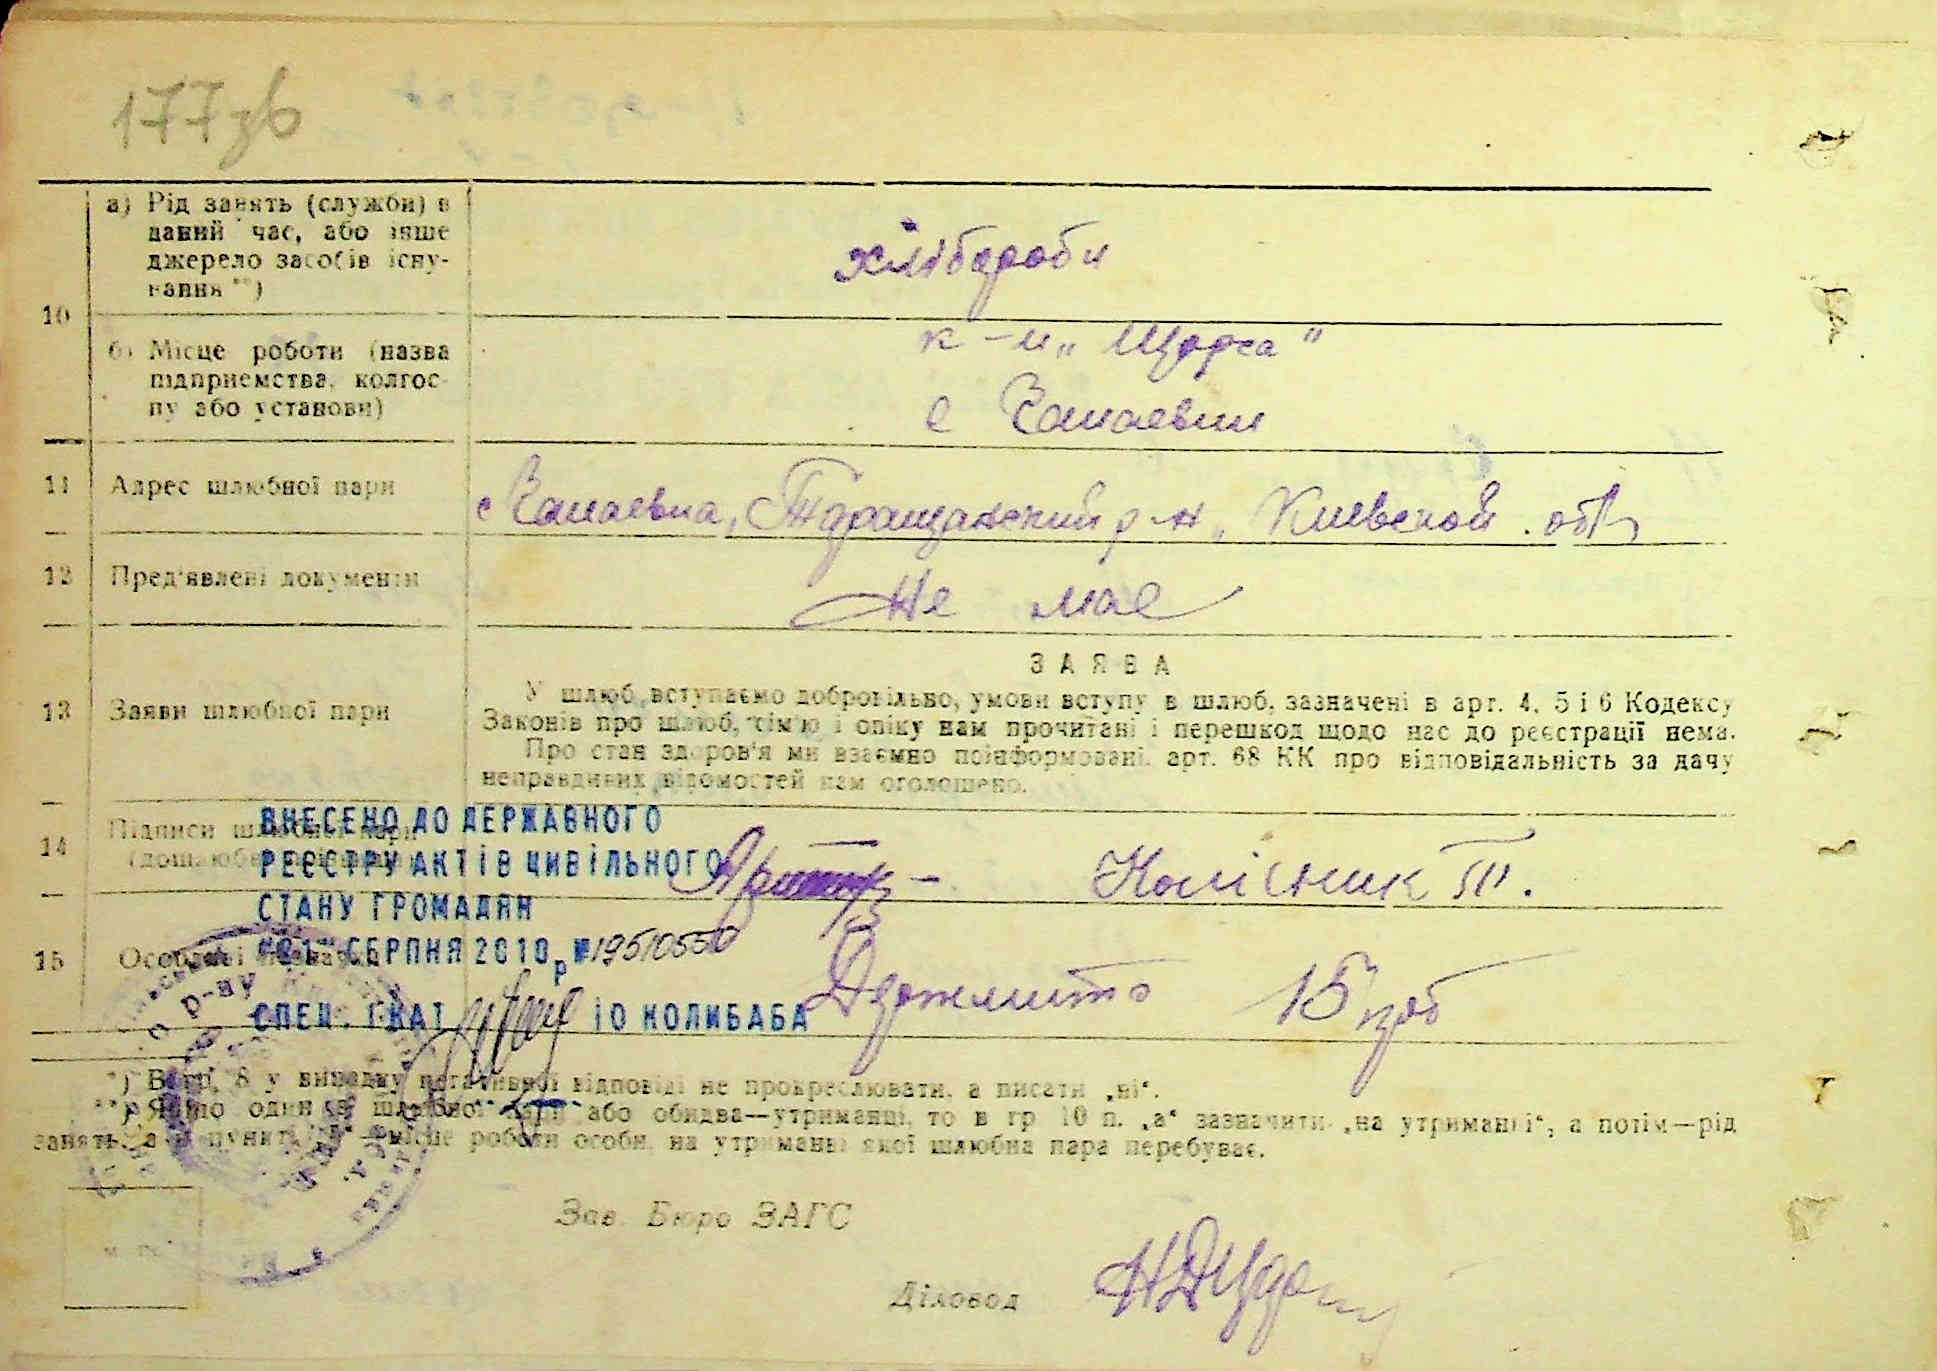 177зв
а) Рід занять (служби) в
даний час, або інше
джерело засобів існу-
вання **)
хлібороби
10
б) Місце роботи (назва
підприємства, колгос-
пу або установи)
к-п „Щорса"
с Чапаевки
11 Адрес шлюбної пари
с Чапаевка, Таращанский р-н, Киевской обл
12 Пред'явлені документи
Не має
ЗАЯВА
13 Заяви шлюбної пари
У шлюб вступаємо добровільно, умови вступу в шлюб, зазначені в арт. 4, 5 і 6 Кодексу
Законів про шлюб, сім'ю і опіку нам прочитані і перешкод щодо нас до реєстрації нема.
Про стан здоров'я ми взаємно поінформовані. арт. 68 КК про відповідальність за дачу
неправдивих відомостей нам оголошено.
14 Підписи шлюбної пари
ВНЕСЕНО ДО ДЕРЖАВНОГО
РЕЄСТРУ АКТІВ ЦИВІЛЬНОГО
Колісник П.
СТАНУ ГРОМАДЯН
15
СЕРПНЯ 2010 р № 19510550
Держмито 15 крб
СПЕЦ. І КАТ ІО КОЛИБАБА
*) В гр. 8 у випадку негативної відповіді не прокреслювати, а писати „ні".
**) Якщо один з шлюбної пари або обидва—утриманці, то в гр 10 п. „а" зазначити „на утриманні", а потім—рід
занять, а в пункті —місце роботи особи, на утриманні якої шлюбна пара перебуває.
Зав. Бюро ЗАГС
м. п.
Діловод